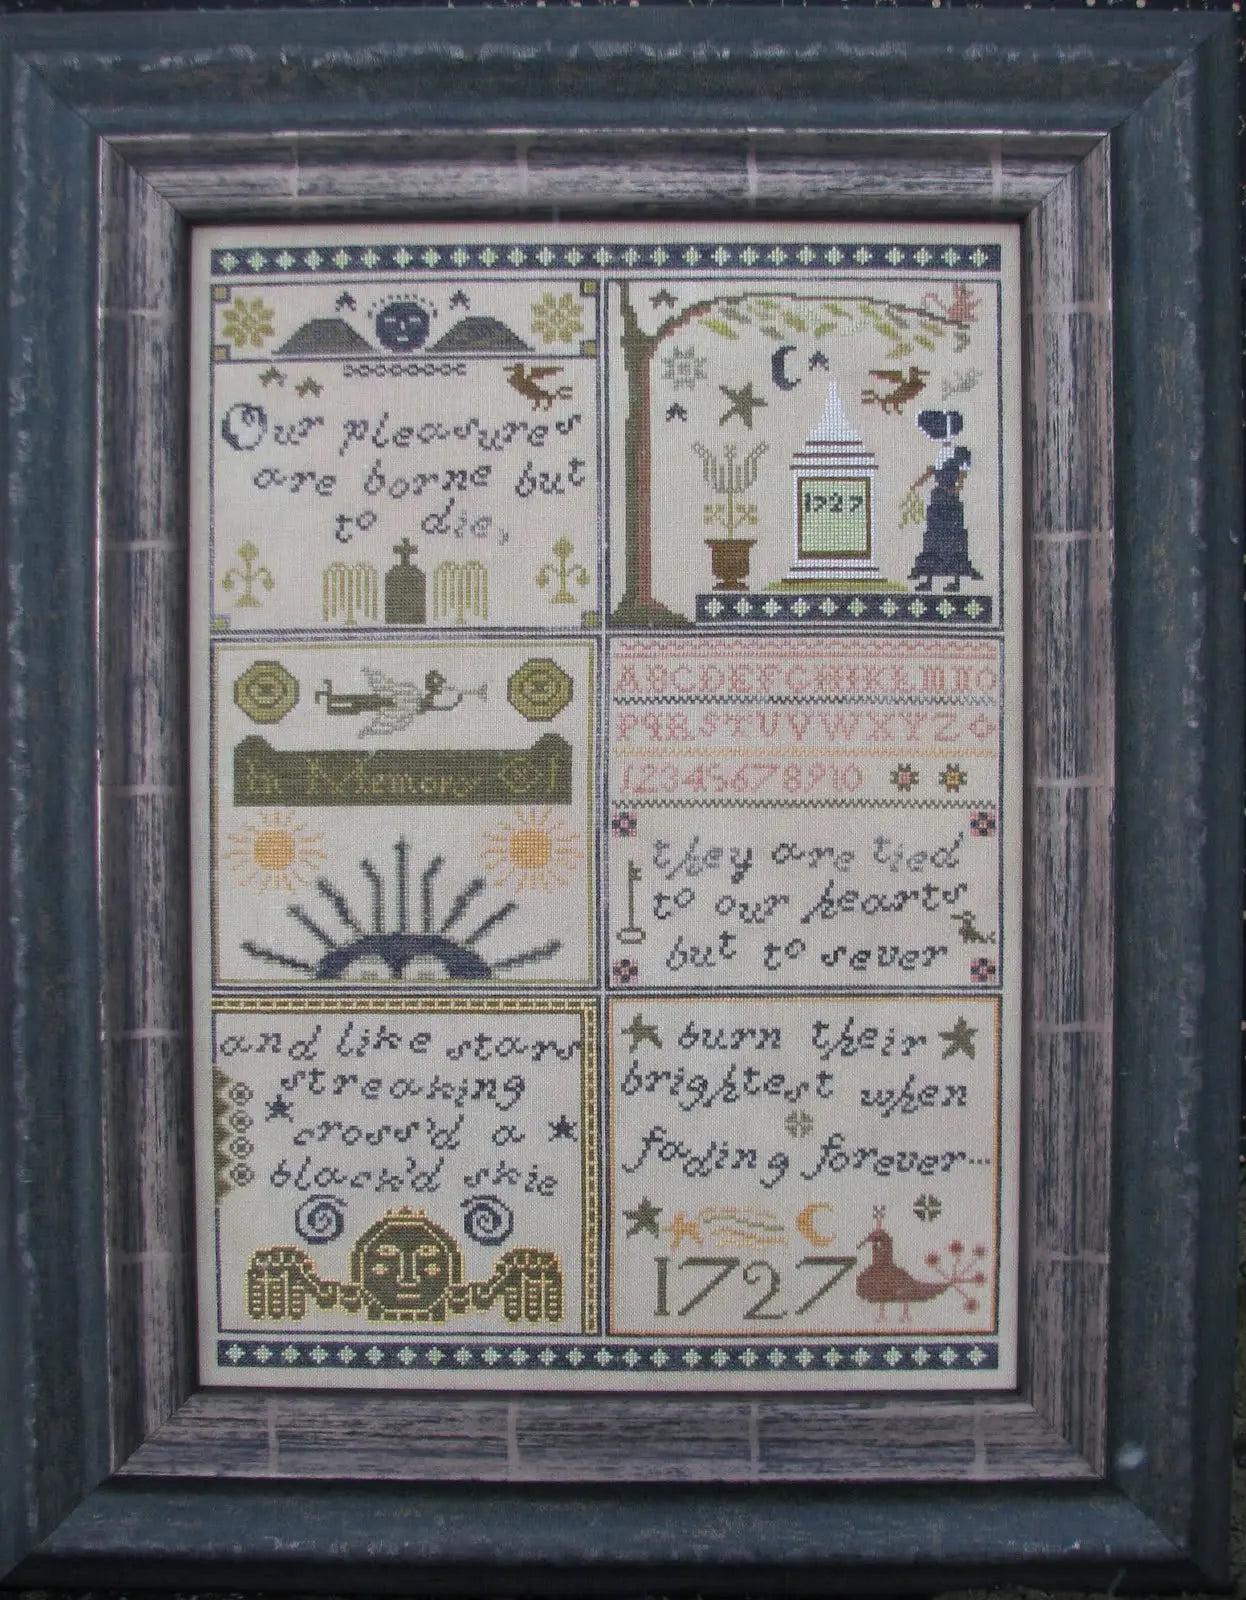 Our pleasures
are borne but
to die,
1727
In Memory
ABCDEFGHIKLMNO
PQRSTUVWXYZ
12345678910
they are tied
to our hearts
but to sever
and like stars
streaking
cross'd a
black'd skie
burn their
brightest when
fading forever...
1727